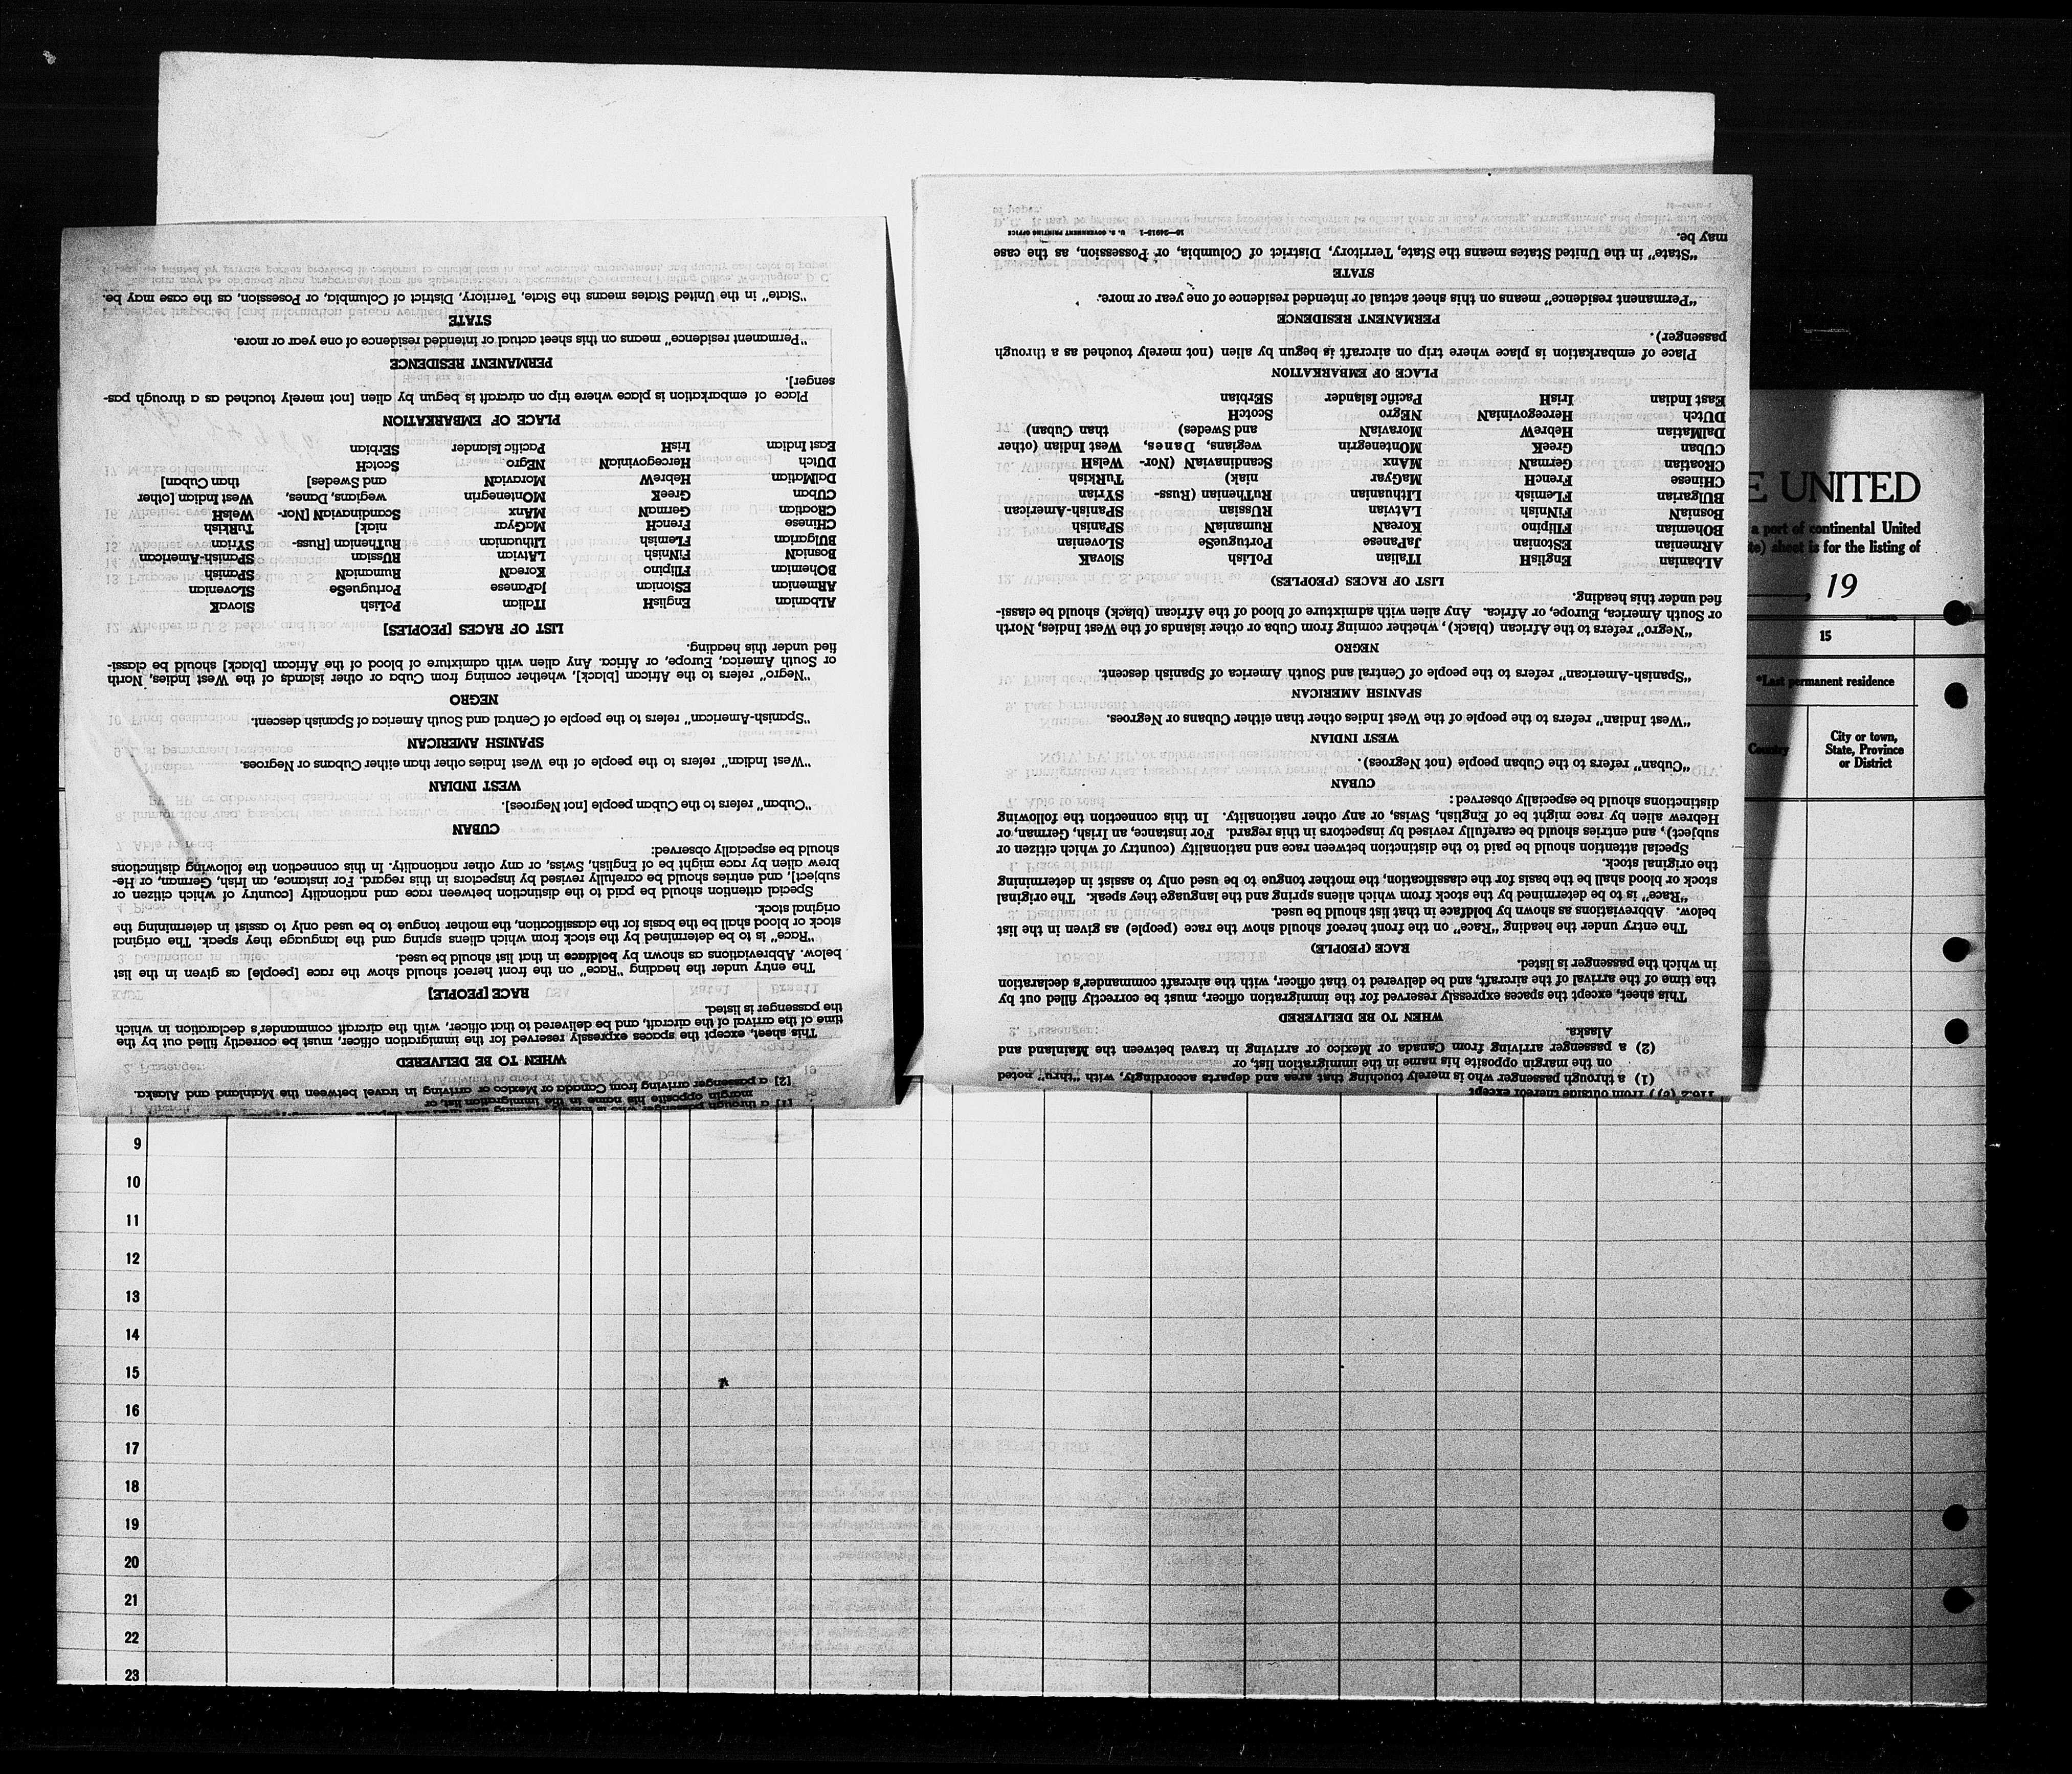 [1] a through passenger who is merely touching that area and departs accordingly, with "thru" noted
margin opposite his name in the immigration list, or
[2] a passenger arriving from Canada or Mexico or arriving in travel between the Mainland and Alaska.
WHEN TO BE DELIVERED
This sheet, except the spaces expressly reserved for the immigration officer, must be correctly filled out by the
time of the arrival of the aircraft, and be delivered to that officer, with the aircraft commander's declaration in which
the passenger is listed.
RACE [PEOPLE]
The entry under the heading "Race" on the front hereof should show the race [people] as given in the list
below. Abbreviations as shown by boldface in that list should be used.
"Race" is to be determined by the stock from which aliens spring and the language they speak. The original
stock or blood shall be the basis for the classification, the mother tongue to be used only to assist in determining the
original stock.
Special attention should be paid to the distinction between race and nationality [country of which citizen or
subject], and entries should be carefully revised by inspectors in this regard. For instance, an Irish, German, or He-
brew alien by race might be of English, Swiss, or any other nationality. In this connection the following distinctions
should be especially observed:
CUBAN
"Cuban" refers to the Cuban people [not Negroes].
WEST INDIAN
"West Indian" refers to the people of the West Indies other than either Cubans or Negroes.
SPANISH AMERICAN
"Spanish-American" refers to the people of Central and South America of Spanish descent.
NEGRO
"Negro" refers to the African [black], whether coming from Cuba or other islands of the West Indies, North
or South America, Europe, or Africa. Any alien with admixture of blood of the African [black] should be classi-
fied under this heading.
LIST OF RACES [PEOPLES]
ALbanian EnglisH ITalian PoLish SlovaK
ARmenian EStonian JaPanese PortugueSe SLovenian
BOhemian FIlipino KoreaN RumaniaN SPanish
BosniaN FiNnish LAtvian RUssian SPanish-American
BUlgarian FLemish LIthuanian RuThenian [Russ- SYrian
CHinese FrencH MaGyar niak] TuRkish
CRoatian GermaN MAnx ScandinaviaN [Nor- WelsH
CUban GreeK MOntenegrin wegians, Danes, West Indian [other
DalMatian HebreW MoraviaN and Swedes] than Cuban]
DUtch HercegoviniaN NEgro ScotcH
East Indian IrisH Pacific Islander SErbian
PLACE OF EMBARKATION
Place of embarkation is place where trip on aircraft is begun by alien [not merely touched as a through pas-
senger].
PERMANENT RESIDENCE
"Permanent residence" means on this sheet actual or intended residence of one year or more.
STATE
"State" in the United States means the State, Territory, District of Columbia, or Possession, as the case may be.
116.2 (c)) from outside thereof except
(1) a through passenger who is merely touching that area and departs accordingly, with "thru" noted
on the margin opposite his name in the immigration list, or
(2) a passenger arriving from Canada or Mexico or arriving in travel between the Mainland and
Alaska.
WHEN TO BE DELIVERED
This sheet, except the spaces expressly reserved for the immigration officer, must be correctly filled out by
the time of the arrival of the aircraft, and be delivered to that officer, with the aircraft commander's declaration
in which the passenger is listed.
RACE (PEOPLE)
The entry under the heading "Race" on the front hereof should show the race (people) as given in the list
below. Abbreviations as shown by boldface in that list should be used.
"Race" is to be determined by the stock from which aliens spring and the language they speak. The original
stock or blood shall be the basis for the classification, the mother tongue to be used only to assist in determining
the original stock.
Special attention should be paid to the distinction between race and nationality (country of which citizen or
subject), and entries should be carefully revised by inspectors in this regard. For instance, an Irish, German, or
Hebrew alien by race might be of English, Swiss, or any other nationality. In this connection the following
distinctions should be especially observed:
CUBAN
"Cuban" refers to the Cuban people (not Negroes).
WEST INDIAN
"West Indian" refers to the people of the West Indies other than either Cubans or Negroes.
SPANISH AMERICAN
"Spanish-American" refers to the people of Central and South America of Spanish descent.
NEGRO
"Negro" refers to the African (black), whether coming from Cuba or other islands of the West Indies, North
or South America, Europe, or Africa. Any alien with admixture of blood of the African (black) should be classi-
fied under this heading.
LIST OF RACES (PEOPLES)
ALbanian EnglisH ITalian PoLish SlovaK
ARmenian EStonian JaPanese PortugueSe SLovenian
BOhemian FIlipino KoreaN RumaniaN SPanish
BosniaN FiNnish LAtvian RUssian SPanish-American
BUlgarian FLemish LIthuanian RuThenian (Russ- SYrian
CHinese FrencH MaGyar niak) TuRkish
CRoatian GermaN MAnx ScandinaviaN (Nor- WelsH
CUban GreeK MOntenegrin wegians, Danes, West Indian (other
DalMatian HebreW MoraviaN and Swedes) than Cuban)
DUtch HercegoviniaN NEgro ScotcH
East Indian IrisH Pacific Islander SErbian
PLACE OF EMBARKATION
Place of embarkation is place where trip on aircraft is begun by alien (not merely touched as a through
passenger).
PERMANENT RESIDENCE
"Permanent residence" means on this sheet actual or intended residence of one year or more.
STATE
"State" in the United States means the State, Territory, District of Columbia, or Possession, as the case
may be.
16—24915-1 U. S. GOVERNMENT PRINTING OFFICE
E UNITED
a port of continental United
te) sheet is for the listing of
, 19
15
*Last permanent residence
Country
City or town,
State, Province
or District
9
10
11
12
13
14
15
16
17
18
19
20
21
22
23